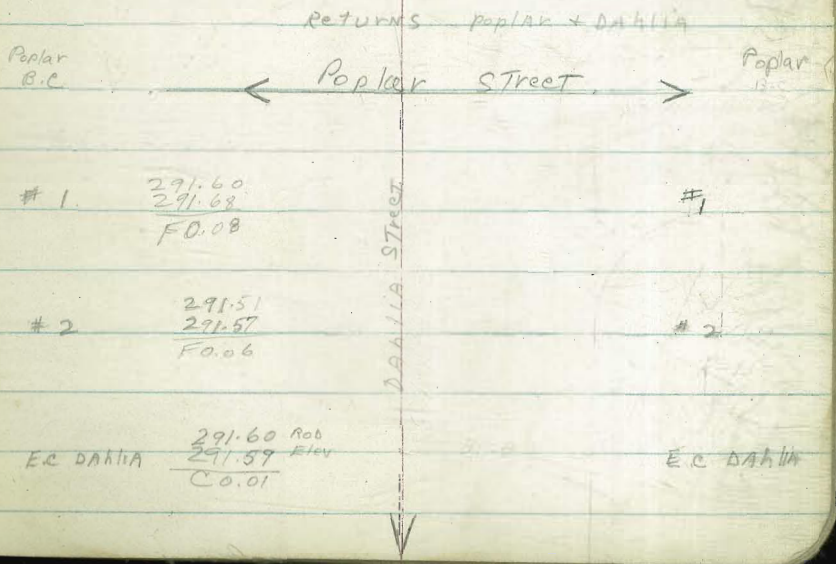 Returns Poplar + DAhlIA
Poplar
B.C
Poplar Street.
Poplar
DAhlIA STreeT
# 1.
291.60
291.68
F0.08
# 1
# 2
291.51
291.57
F0.06
# 2
E.C DAhlIA
291.60 ROD
291.59 Elev
C0.01
E.C DAhlIA